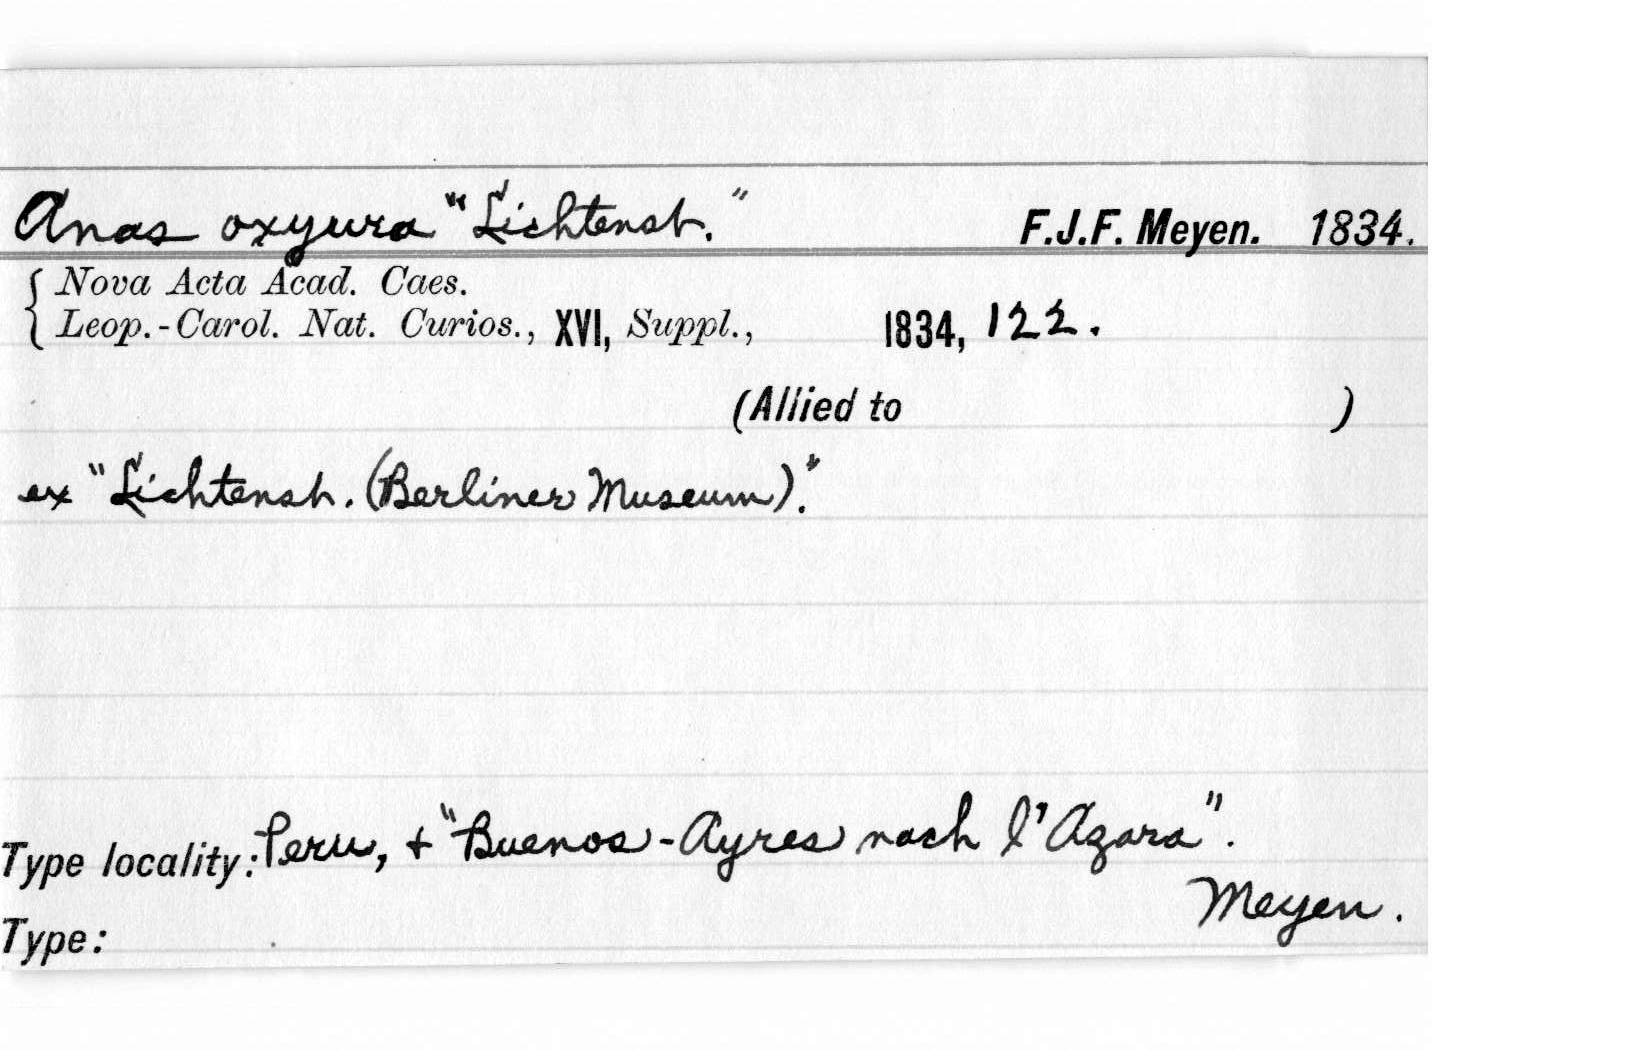 Anas oxyura "Lichtenst." F.J.F. Meyen. 1834.
Nova Acta Acad. Caes.
Leop.-Carol. Nat. Curios., XVI, Suppl., 1834, 122.
(Allied to )
ex "Lichtenst. (Berliner Museum)."
Type locality: Peru, + "Buenos-Ayres nach l'Azara".
Meyen.
Type: